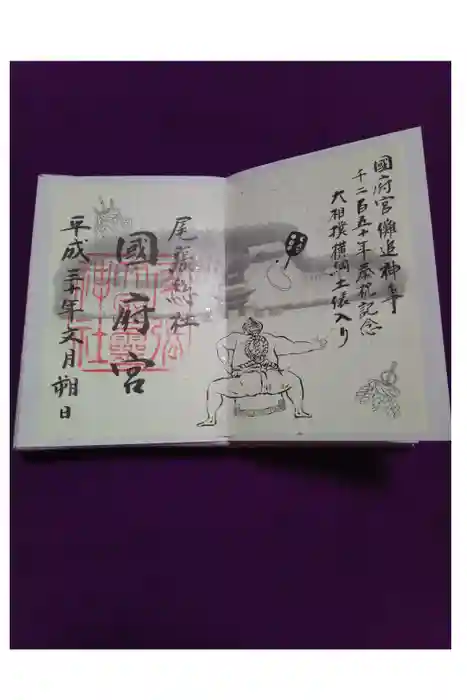 國府宮儺追神事
千二百五十年慶祝記念
大相撲横綱土俵入り
尾張總社
國府宮
平成三十年六月朔日